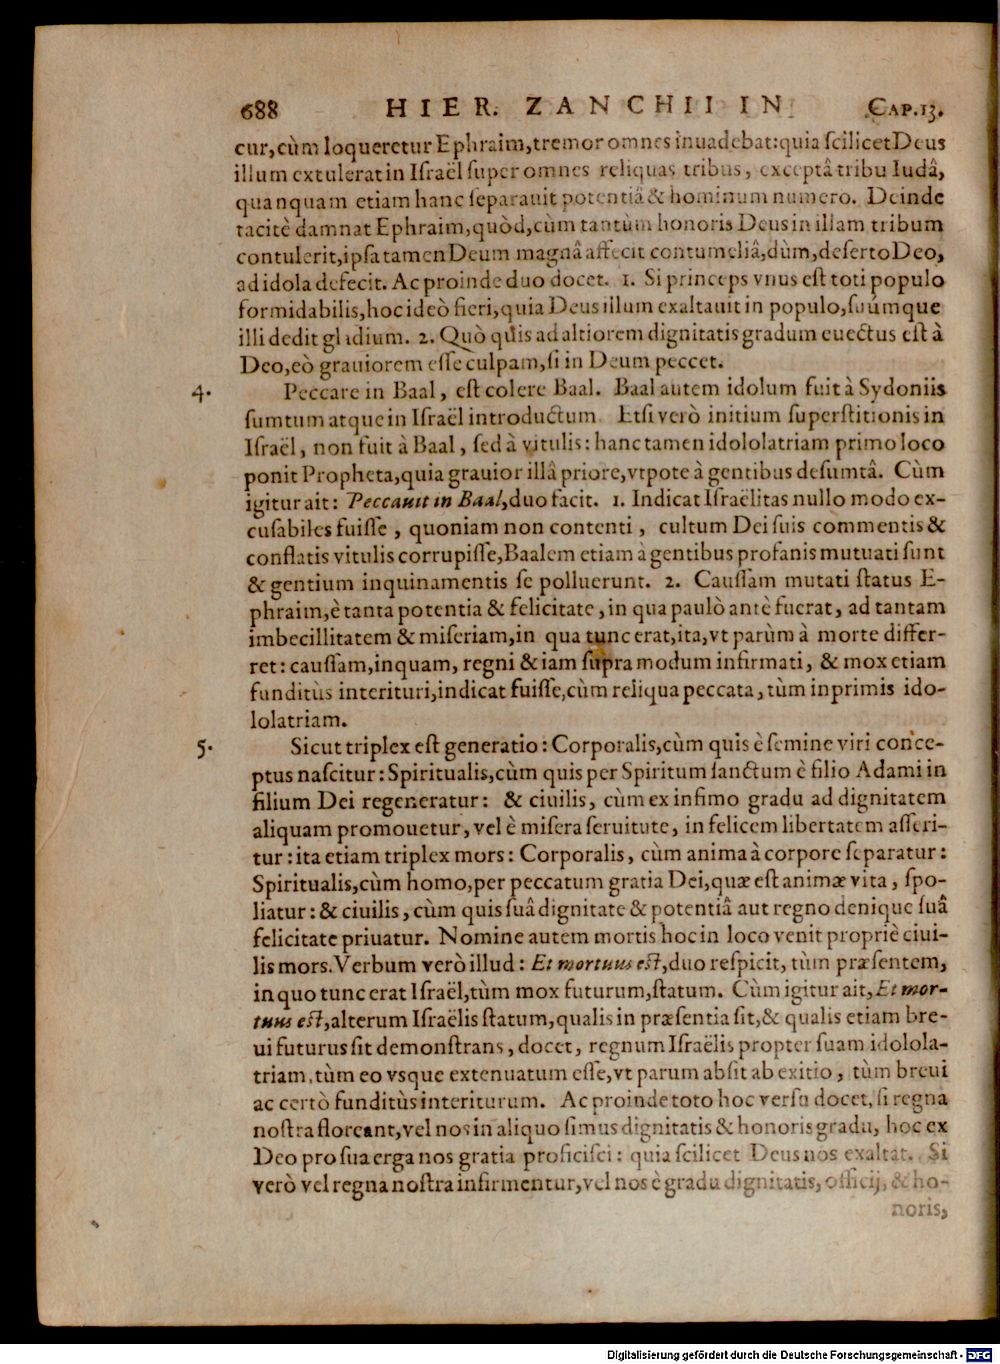 688 HIER. ZANCHII IN CAP.13.
cur, cùm loqueretur Ephraim, tremor omnes inuadebat: quia ſcilicet Deus
illum extulerat in Iſraël ſuper omnes reliquas tribus, exceptâ tribu Iudâ,
quanquam etiam hanc ſeparauit potentiâ & hominum numero. Deinde
tacitè damnat Ephraim, quòd, cùm tantùm honoris Deus in illam tribum
contulerit, ipſa tamen Deum magnâ affecit contumeliâ, dùm, deſerto Deo,
ad idola defecit. Ac proinde duo docet. 1. Si princeps vnus eſt toti populo
formidabilis, hoc ideò fieri, quia Deus illum exaltauit in populo, ſuúmque
illi dedit gladium. 2. Quò quis ad altiorem dignitatis gradum euectus eſt à
Deo, eò grauiorem eſſe culpam, ſi in Deum peccet.
4. Peccare in Baal, eſt colere Baal. Baal autem idolum fuit à Sydoniis
ſumtum atque in Iſraël introductum. Etſi verò initium ſuperſtitionis in
Iſraël, non fuit à Baal, ſed à vitulis: hanc tamen idololatriam primo loco
ponit Propheta, quia grauior illâ priore, vtpote à gentibus deſumtâ. Cùm
igitur ait: Peccauit in Baal, duo facit. 1. Indicat Iſraëlitas nullo modo ex-
cuſabiles fuiſſe, quoniam non contenti, cultum Dei ſuis commentis &
conflatis vitulis corrupiſſe, Baalem etiam à gentibus profanis mutuati ſunt
& gentium inquinamentis ſe polluerunt. 2. Cauſſam mutati ſtatus E-
phraim, è tanta potentia & felicitate, in qua paulò antè fuerat, ad tantam
imbecillitatem & miſeriam, in qua tunc erat, ita, vt parùm à morte differ-
ret: cauſſam, inquam, regni & iam ſupra modum infirmati, & mox etiam
funditùs interituri, indicat fuiſſe, cùm reliqua peccata, tùm inprimis ido-
lolatriam.
5. Sicut triplex eſt generatio: Corporalis, cùm quis è ſemine viri conce-
ptus naſcitur: Spiritualis, cùm quis per Spiritum ſanctum è filio Adami in
filium Dei regeneratur: & ciuilis, cùm ex infimo gradu ad dignitatem
aliquam promouetur, vel è miſera ſeruitute, in felicem libertatem aſſeri-
tur: ita etiam triplex mors: Corporalis, cùm anima à corpore ſeparatur:
Spiritualis, cùm homo, per peccatum gratia Dei, quæ eſt animæ vita, ſpo-
liatur: & ciuilis, cùm quis ſuâ dignitate & potentiâ aut regno denique ſuâ
felicitate priuatur. Nomine autem mortis hoc in loco venit propriè ciui-
lis mors. Verbum verò illud: Et mortuus eſt, duo reſpicit, tùm præſentem,
in quo tunc erat Iſraël, tùm mox futurum, ſtatum. Cùm igitur ait, Et mor-
tuus eſt, alterum Iſraëlis ſtatum, qualis in præſentia ſit, & qualis etiam bre-
ui futurus ſit demonſtrans, docet, regnum Iſraëlis propter ſuam idolola-
triam, tùm eo vsque extenuatum eſſe, vt parum abſit ab exitio, tùm breui
ac certò funditùs interiturum. Ac proinde toto hoc verſu docet, ſi regna
noſtra floreant, vel nos in aliquo ſimus dignitatis & honoris gradu, hoc ex
Deo pro ſua erga nos gratia proficiſci: quia ſcilicet Deus nos exaltat. Si
verò vel regna noſtra infirmentur, vel nos è gradu dignitatis, officij, & ho-
noris,
Digitalisierung gefördert durch die Deutsche Forschungsgemeinschaft - DFG